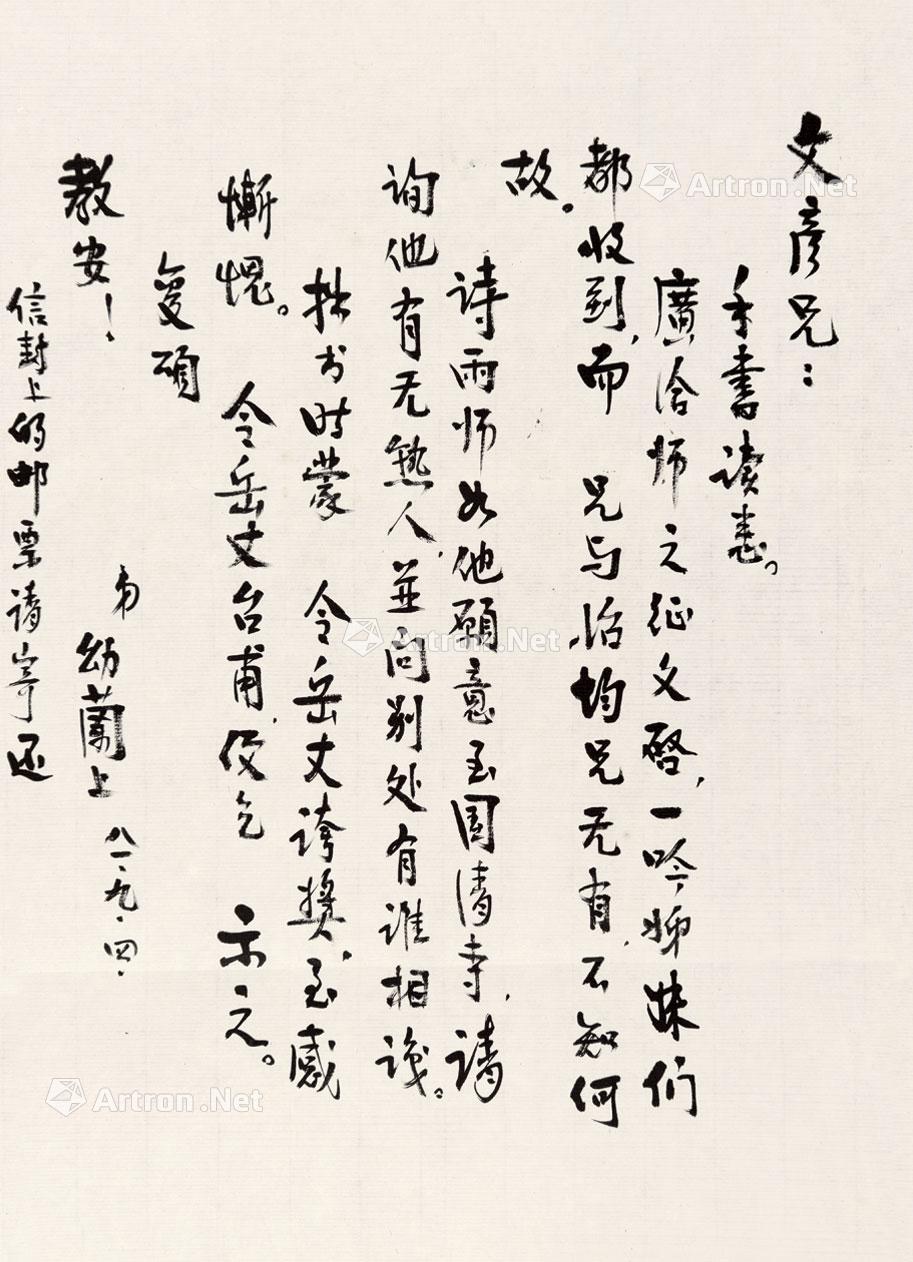 文彦兄：
手书读悉。
廣洽师之征文啓，一吟姊妹们
都收到，而 兄与怡均兄无有，不知何
故。
诗雨师如他願意至国清寺，请
询他有无熟人，並向别处有谁相识。
拙书时蒙 令岳丈誇奬，至感
慚愧。 令岳丈台甫，便乞 示之。
复颂
教安！
弟 幼蘭上 八一、九、四、
信封上的邮票请寄还
Artron.Net
Artron.Net
Artron.Net